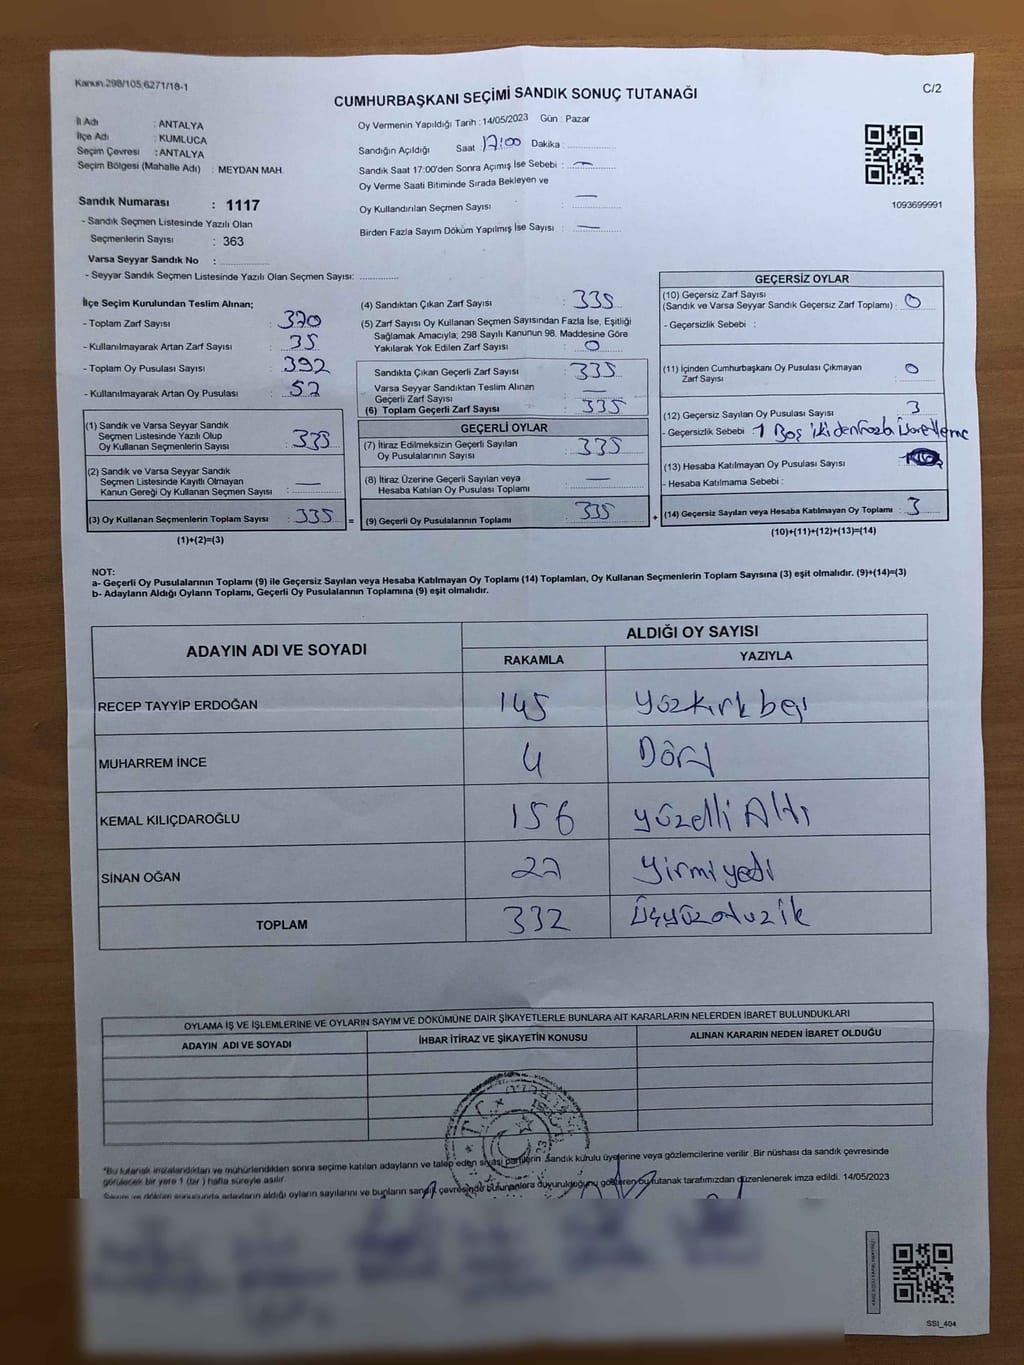 Kanun.298/105,6271/18-1
CUMHURBAŞKANI SEÇİMİ SANDIK SONUÇ TUTANAĞI
C/2
İl Adı : ANTALYA
İlçe Adı : KUMLUCA
Seçim Çevresi : ANTALYA
Seçim Bölgesi (Mahalle Adı) : MEYDAN MAH.
Sandık Numarası : 1117
- Sandık Seçmen Listesinde Yazılı Olan
Seçmenlerin Sayısı : 363
Varsa Seyyar Sandık No :
- Seyyar Sandık Seçmen Listesinde Yazılı Olan Seçmen Sayısı:
Oy Vermenin Yapıldığı Tarih : 14/05/2023 Gün : Pazar
Sandığın Açıldığı Saat 17:00 Dakika :
Sandık Saat 17:00'den Sonra Açımış İse Sebebi : —
Oy Verme Saati Bitiminde Sırada Bekleyen ve
Oy Kullandırılan Seçmen Sayısı : —
Birden Fazla Sayım Döküm Yapılmış İse Sayısı : —
1093699991
İlçe Seçim Kurulundan Teslim Alınan;
- Toplam Zarf Sayısı : 370
- Kullanılmayarak Artan Zarf Sayısı : 35
- Toplam Oy Pusulası Sayısı : 392
- Kullanılmayarak Artan Oy Pusulası : 57
(1) Sandık ve Varsa Seyyar Sandık
Seçmen Listesinde Yazılı Olup
Oy Kullanan Seçmenlerin Sayısı : 335
(2) Sandık ve Varsa Seyyar Sandık
Seçmen Listesinde Kayıtlı Olmayan
Kanun Gereği Oy Kullanan Seçmen Sayısı : —
(3) Oy Kullanan Seçmenlerin Toplam Sayısı : 335 =
(1)+(2)=(3)
(4) Sandıktan Çıkan Zarf Sayısı : 335
(5) Zarf Sayısı Oy Kullanan Seçmen Sayısından Fazla İse, Eşitliği
Sağlamak Amacıyla; 298 Sayılı Kanunun 98. Maddesine Göre
Yakılarak Yok Edilen Zarf Sayısı : 0
Sandıkta Çıkan Geçerli Zarf Sayısı : 335
Varsa Seyyar Sandıktan Teslim Alınan
Geçerli Zarf Sayısı : —
(6) Toplam Geçerli Zarf Sayısı : 335
GEÇERLİ OYLAR
(7) İtiraz Edilmeksizin Geçerli Sayılan
Oy Pusulalarının Sayısı : 335
(8) İtiraz Üzerine Geçerli Sayılan veya
Hesaba Katılan Oy Pusulası Toplamı : —
(9) Geçerli Oy Pusulalarının Toplamı : 335 +
GEÇERSİZ OYLAR
(10) Geçersiz Zarf Sayısı
(Sandık ve Varsa Seyyar Sandık Geçersiz Zarf Toplamı) : 0
- Geçersizlik Sebebi :
(11) İçinden Cumhurbaşkanı Oy Pusulası Çıkmayan
Zarf Sayısı : 0
(12) Geçersiz Sayılan Oy Pusulası Sayısı : 3
- Geçersizlik Sebebi : 1 Boş iki den fazla
(13) Hesaba Katılmayan Oy Pusulası Sayısı :
- Hesaba Katılmama Sebebi :
(14) Geçersiz Sayılan veya Hesaba Katılmayan Oy Toplamı : 3
(10)+(11)+(12)+(13)=(14)
NOT:
a- Geçerli Oy Pusulalarının Toplamı (9) ile Geçersiz Sayılan veya Hesaba Katılmayan Oy Toplamı (14) Toplamları, Oy Kullanan Seçmenlerin Toplam Sayısına (3) eşit olmalıdır. (9)+(14)=(3)
b- Adayların Aldığı Oyların Toplamı, Geçerli Oy Pusulalarının Toplamına (9) eşit olmalıdır.
ADAYIN ADI VE SOYADI
ALDIĞI OY SAYISI
RAKAMLA YAZIYLA
RECEP TAYYİP ERDOĞAN 145 yüzkırk beş
MUHARREM İNCE 4 Dört
KEMAL KILIÇDAROĞLU 156 yüzelli Altı
SİNAN OĞAN 27 yirmi yedi
TOPLAM 332 üçyüzotuz ik
OYLAMA İŞ VE İŞLEMLERİNE VE OYLARIN SAYIM VE DÖKÜMÜNE DAİR ŞİKAYETLERLE BUNLARA AİT KARARLARIN NELERDEN İBARET BULUNDUKLARI
ADAYIN ADI VE SOYADI İHBAR İTİRAZ VE ŞİKAYETİN KONUSU ALINAN KARARIN NEDEN İBARET OLDUĞU
T.C.
*Bu tutanak imzalandıktan ve mühürlendikten sonra seçime katılan adayların ve talep eden siyasi partilerin sandık kurulu üyelerine veya gözlemcilerine verilir .Bir nüshası da sandık çevresinde
görülecek bir yere 1 (bir ) hafta süreyle asılır.
Sayım ve döküm sonucunda adayların aldığı oyların sayılarını ve bunların sandık çevresinde bulunanlara duyurulduğunu gösteren bu tutanak tarafımızdan düzenlenerek imza edildi. 14/05/2023
SSI_404